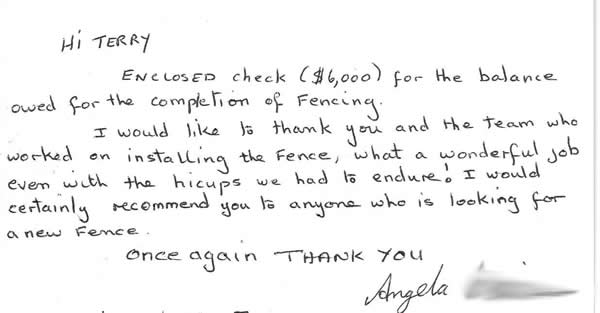 Hi TERRY
ENCLOSED check ($6,000) for the balance
owed for the completion of Fencing.
I would like to thank you and the Team who
worked on installing the Fence, what a wonderful job
even with the hicups we had to endure! I would
certainly recommend you to anyone who is looking for
a new Fence.
Once again THANK YOU
Angela